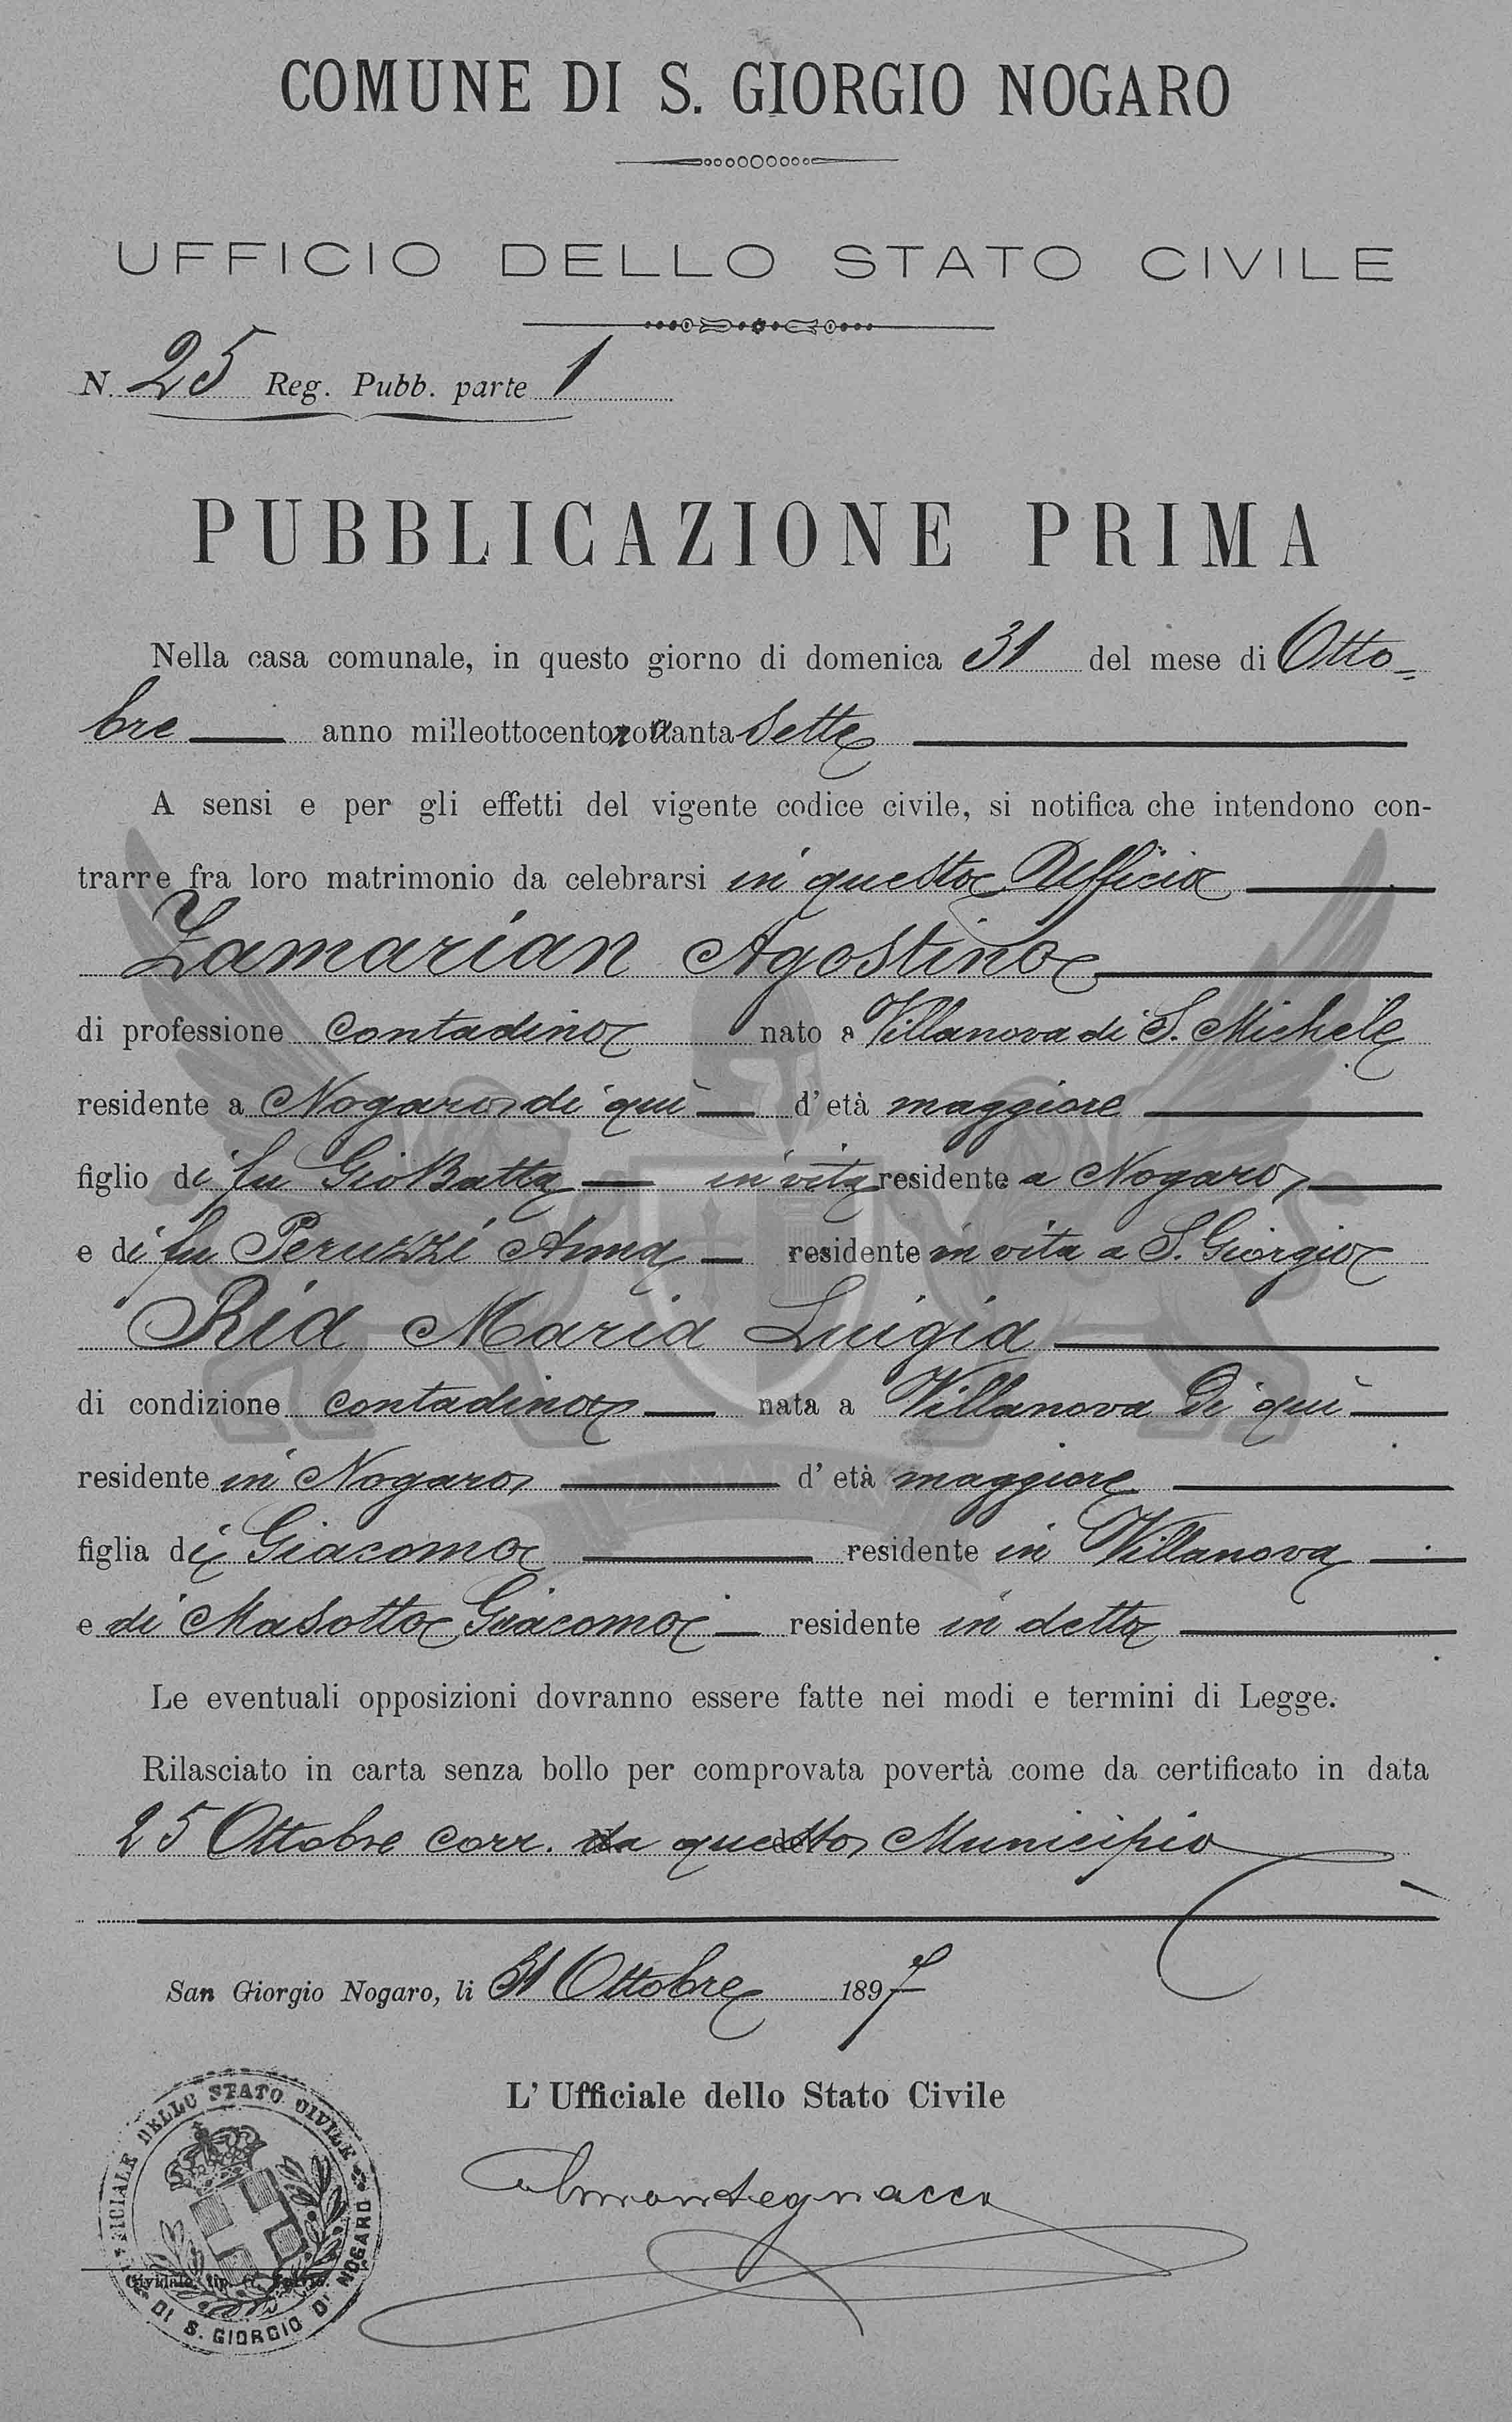 COMUNE DI S. GIORGIO NOGARO
UFFICIO DELLO STATO CIVILE
N. 25 Reg. Pubb. parte 1
PUBBLICAZIONE PRIMA
Nella casa comunale, in questo giorno di domenica 31 del mese di Otto-
bre anno milleottocentonovanta sette
A sensi e per gli effetti del vigente codice civile, si notifica che intendono con-
trarre fra loro matrimonio da celebrarsi in questo Ufficio
Zamarian Agostino
di professione contadino nato a Villanova di S. Michele
residente a Nogaro di quì d'età maggiore
figlio di fu GioBatta in vita residente a Nogaro
e di fu Peruzzi Anna residente in vita a S. Giorgio
Rid Maria Luigia
di condizione contadina nata a Villanova di quì
residente in Nogaro d'età maggiore
figlia di Giacomo residente in Villanova
e di Masotto Giacomo residente in detto
Le eventuali opposizioni dovranno essere fatte nei modi e termini di Legge.
Rilasciato in carta senza bollo per comprovata povertà come da certificato in data
25 Ottobre corr. da questo Municipio
San Giorgio Nogaro, li 31 Ottobre 1897
L' Ufficiale dello Stato Civile
UFFICIALE DELLO STATO CIVILE
DI S. GIORGIO DI NOGARO